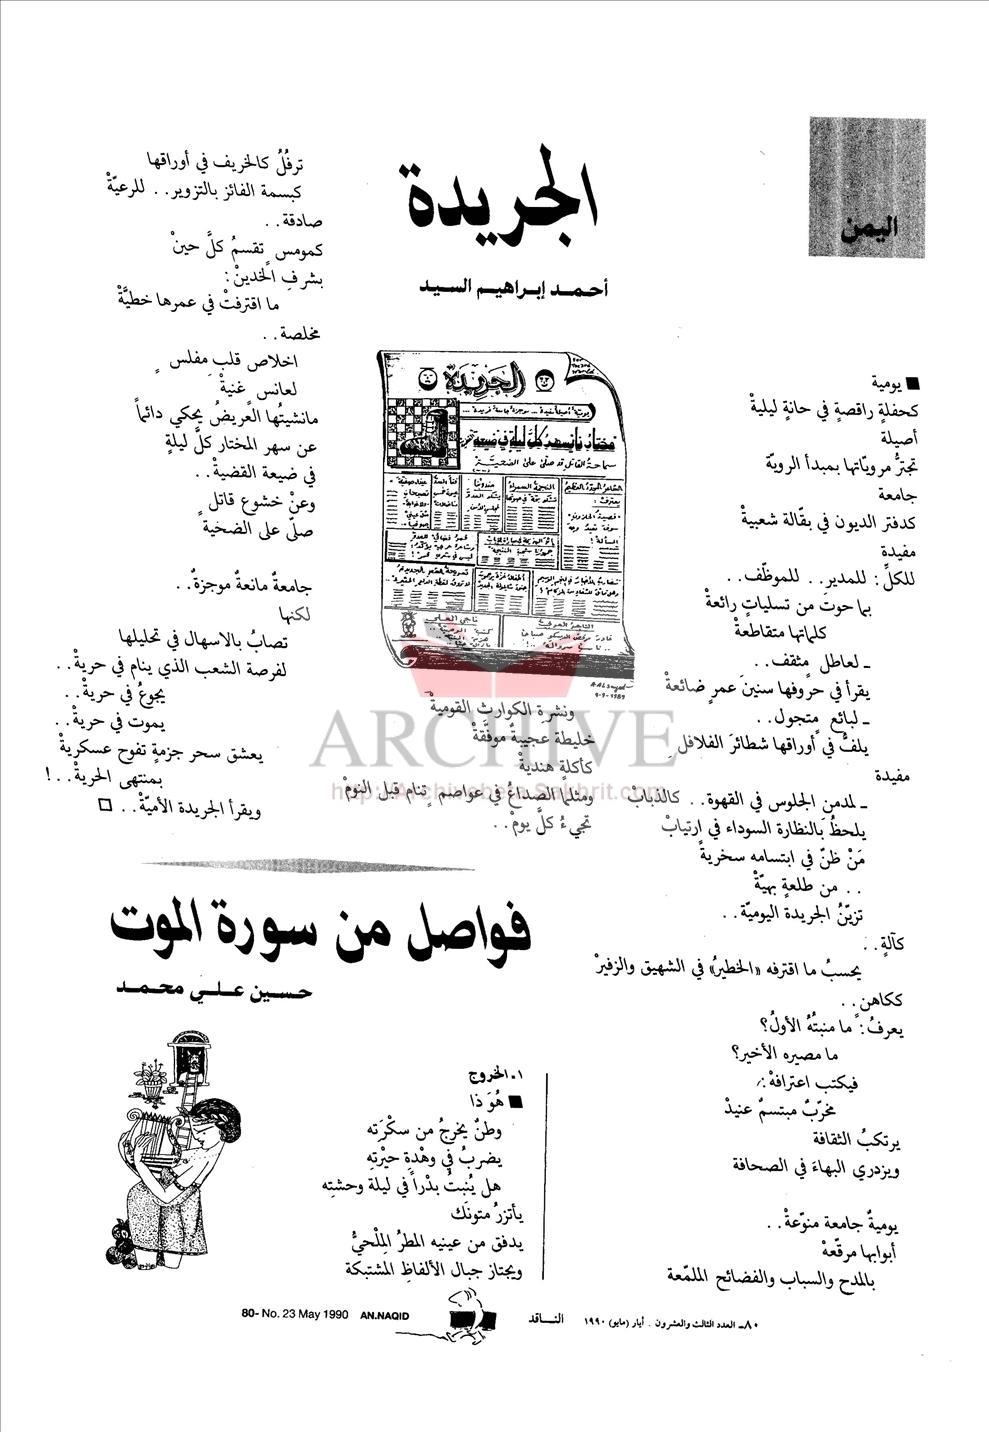 اليمن
الجريدة
أحمد إبراهيم السيد
■ يومية
كحفلةٍ راقصةٍ في حانةٍ ليليةْ
أصيلة
تجترُّ مرويّاتها بمبدأ الرويّة
جامعة
كدفتر الديون في بقّالة شعبيةْ
مفيدة
للكلِّ: للمدير.. للموظّف..
بما حوتْ من تسلياتٍ رائعةْ
كلماتها متقاطعةْ
ـ لعاطلٍ مثقف..
يقرأ في حروفها سنينَ عمرٍ ضائعةْ
ـ لبائعٍ متجول..
يلفُّ في أوراقها شطائرَ الفلافلِ
مفيدة
ـ لمدمن الجلوس في القهوة.. كالذبابْ
يلحظُ بالنظارة السوداء في ارتيابْ
مَنْ ظنّ في ابتسامه سخريةً
.. من طلعةٍ بهيّةْ
تزيّنُ الجريدة اليوميّة..
كآلةٍ..
يحسبُ ما اقترفه «الخطيرُ» في الشهيق والزفيرْ
ككاهنٍ..
يعرفُ: ما منبتُهُ الأولُ؟
ما مصيره الأخير؟
فيكتب اعترافهْ:
مخرّبٌ مبتسمٌ عنيدْ
يرتكبُ الثقافة
ويزدري البهاءَ في الصحافة
يوميةٌ جامعة منوّعةْ..
أبوابها مرقّعةْ
بالمدح والسباب والفضائح الملمّعة
الجريدة
ونشرةِ الكوارث القوميةْ
خليطة عجيبةٌ موفّقةْ
كأكلةٍ هنديةْ
ومثلما الصداعُ في عواصمٍ تنام قبل النومْ
تجيءُ كلَّ يومْ..
ترفُلُ كالخريف في أوراقها
كبسمة الفائز بالتزوير.. للرعيّةْ
صادقة..
كمومسٍ تقسمُ كلَّ حينْ
بشرفِ الخدينْ:
ما اقترفتْ في عمرها خطيَّةْ
مخلصة..
اخلاص قلبٍ مفلسٍ
لعانسٍ غنيةْ
مانشيتُها العريضُ يحكي دائماً
عن سهر المختار كلَّ ليلةٍ
في ضيعة القضيةْ..
وعنْ خشوع قاتلٍ
صلّى على الضحية
جامعةٌ مانعةٌ موجزةٌ..
لكنها
تصابُ بالاسهال في تحليلها
لفرصة الشعب الذي ينام في حريةْ..
يجوعُ في حريةْ..
يموت في حريةْ..
يعشق سحر جزمةٍ تفوح عسكريةْ
بمنتهى الحريةْ..!
ويقرأ الجريدة الأميّةْ.. □
ARCHIVE
http://Archivebeta.Sakhrit.com
فواصل من سورة الموت
حسين علي محمد
١ـ الخروج
■ هُوَ ذا
وطنٌ يخرجُ من سكْرَته
يضربُ في وهْدةِ حيْرتِه
هل يُنبتُ بدْراً في ليلة وحشتِه
يأتزرُ متونَك
يدفق من عينيه المطرُ المِلْحيُّ
ويجتاز جبال الألفاظِ المشتبكة
٨٠ـ العدد الثالث والعشرون . أيار (مايو) ١٩٩٠ النـاقد
80- No. 23 May 1990 AN.NAQID